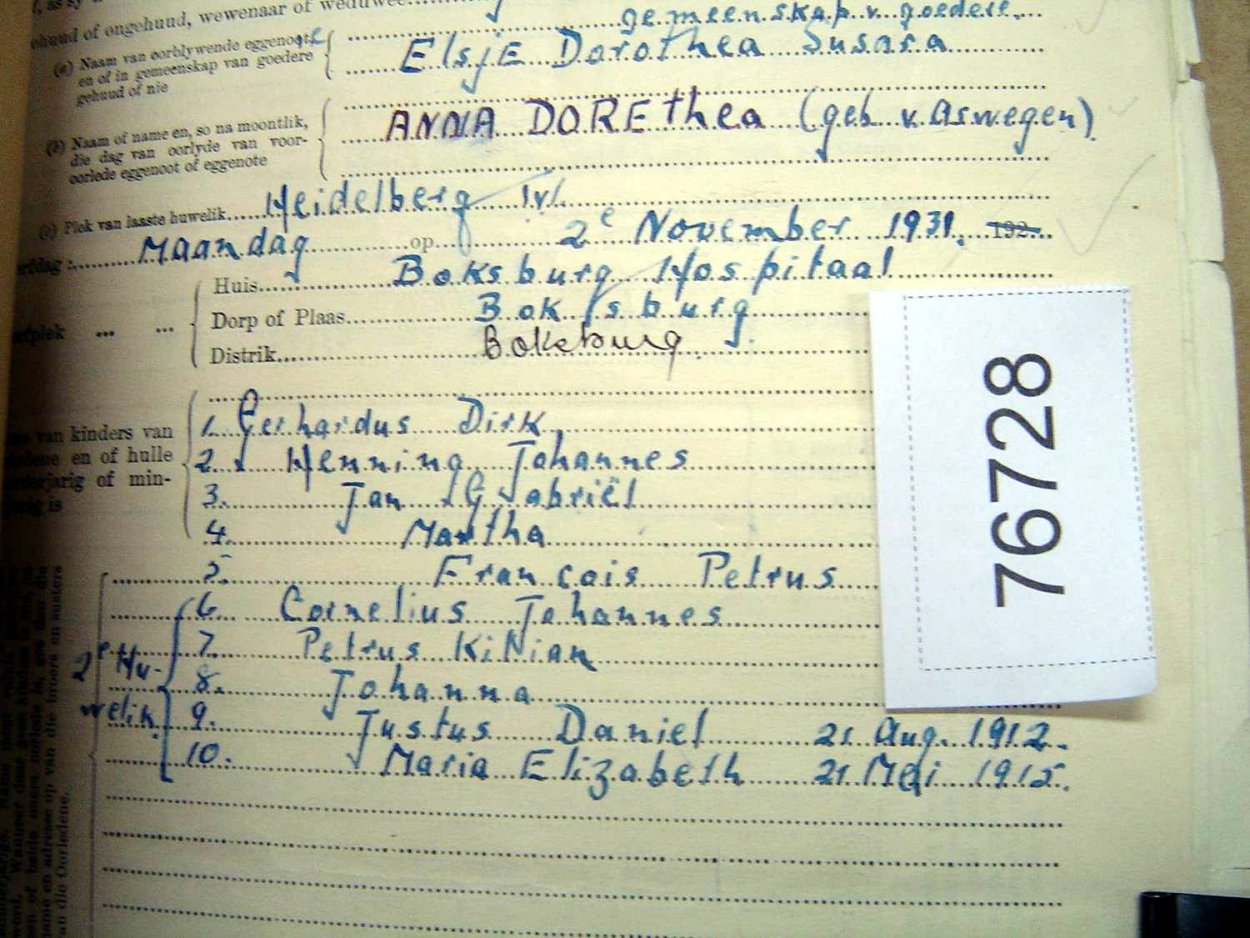 ehuud of ongehuud, wewenaar of weduwee
gemeenskap v. goedere
(a) Naam van oorblywende eggenoote
en of in gemeenskap van goedere
gehuud of nie
Elsje Dorothea Susara
(b) Naam of name en, so na moontlik,
die dag van oorlyde van voor-
oorlede eggenoot of eggenote
ANNA DOREthea (geb v. Aswegen)
(c) Plek van laaste huwelik Heidelberg Tvl.
erfdag: Maandag op 2e November 1931. 192
Huis Boksburg Hospitaal
erfplek ... ... Dorp of Plaas Boksburg
Distrik Boksburg
van kinders van
en of hulle
erjarig of min-
is
1. Gerhardus Dirk
2. Henning Johannes
3. Jan Gabriël
4. Martha
5. Francois Petrus
2e Hu-
welik
6. Cornelius Johannes
7. Petrus Kilian
8. Johanna
9. Justus Daniel 21 Aug. 1912.
10. Maria Elizabeth 21 Mei 1915.
76728